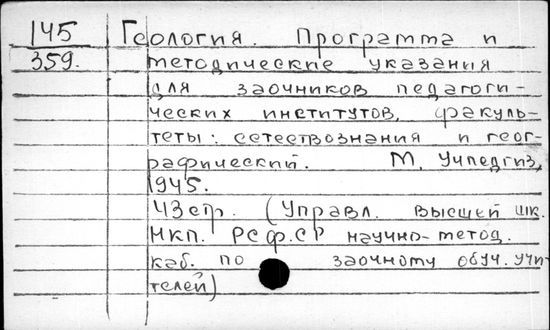 145 Геология. Программа и
359. методические указания
для заочников педагоги-
ческих институтов, факуль-
теты: естествознания и геог-
рафический. М. Учпедгиз,
1945.
43стр. (Управл. высшей шк.
НКП. РСФСР научно-метод.
каб. по заочному обуч. учи-
телей)